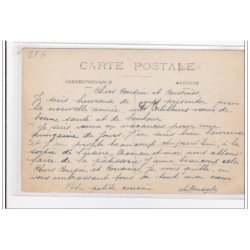 256
CARTE POSTALE
CORRESPONDANCE ADRESSE
Chers Cousin et Cousines
Je suis heureuse de vous présenter pour
la nouvelle année mes meilleurs vœux de
bonne santé et de bonheur
Je suis en vacances pour une
de jours. J'en suis bien heureuse
et j'en profite beaucoup aujourd'hui, à la
sortie de Maman nous allons
faire de la pâtisserie. J'aime beaucoup cela
Chers Cousin et Cousines je vous quitte, en
vous embrassant tous de tout mon cœur
Votre petite cousine